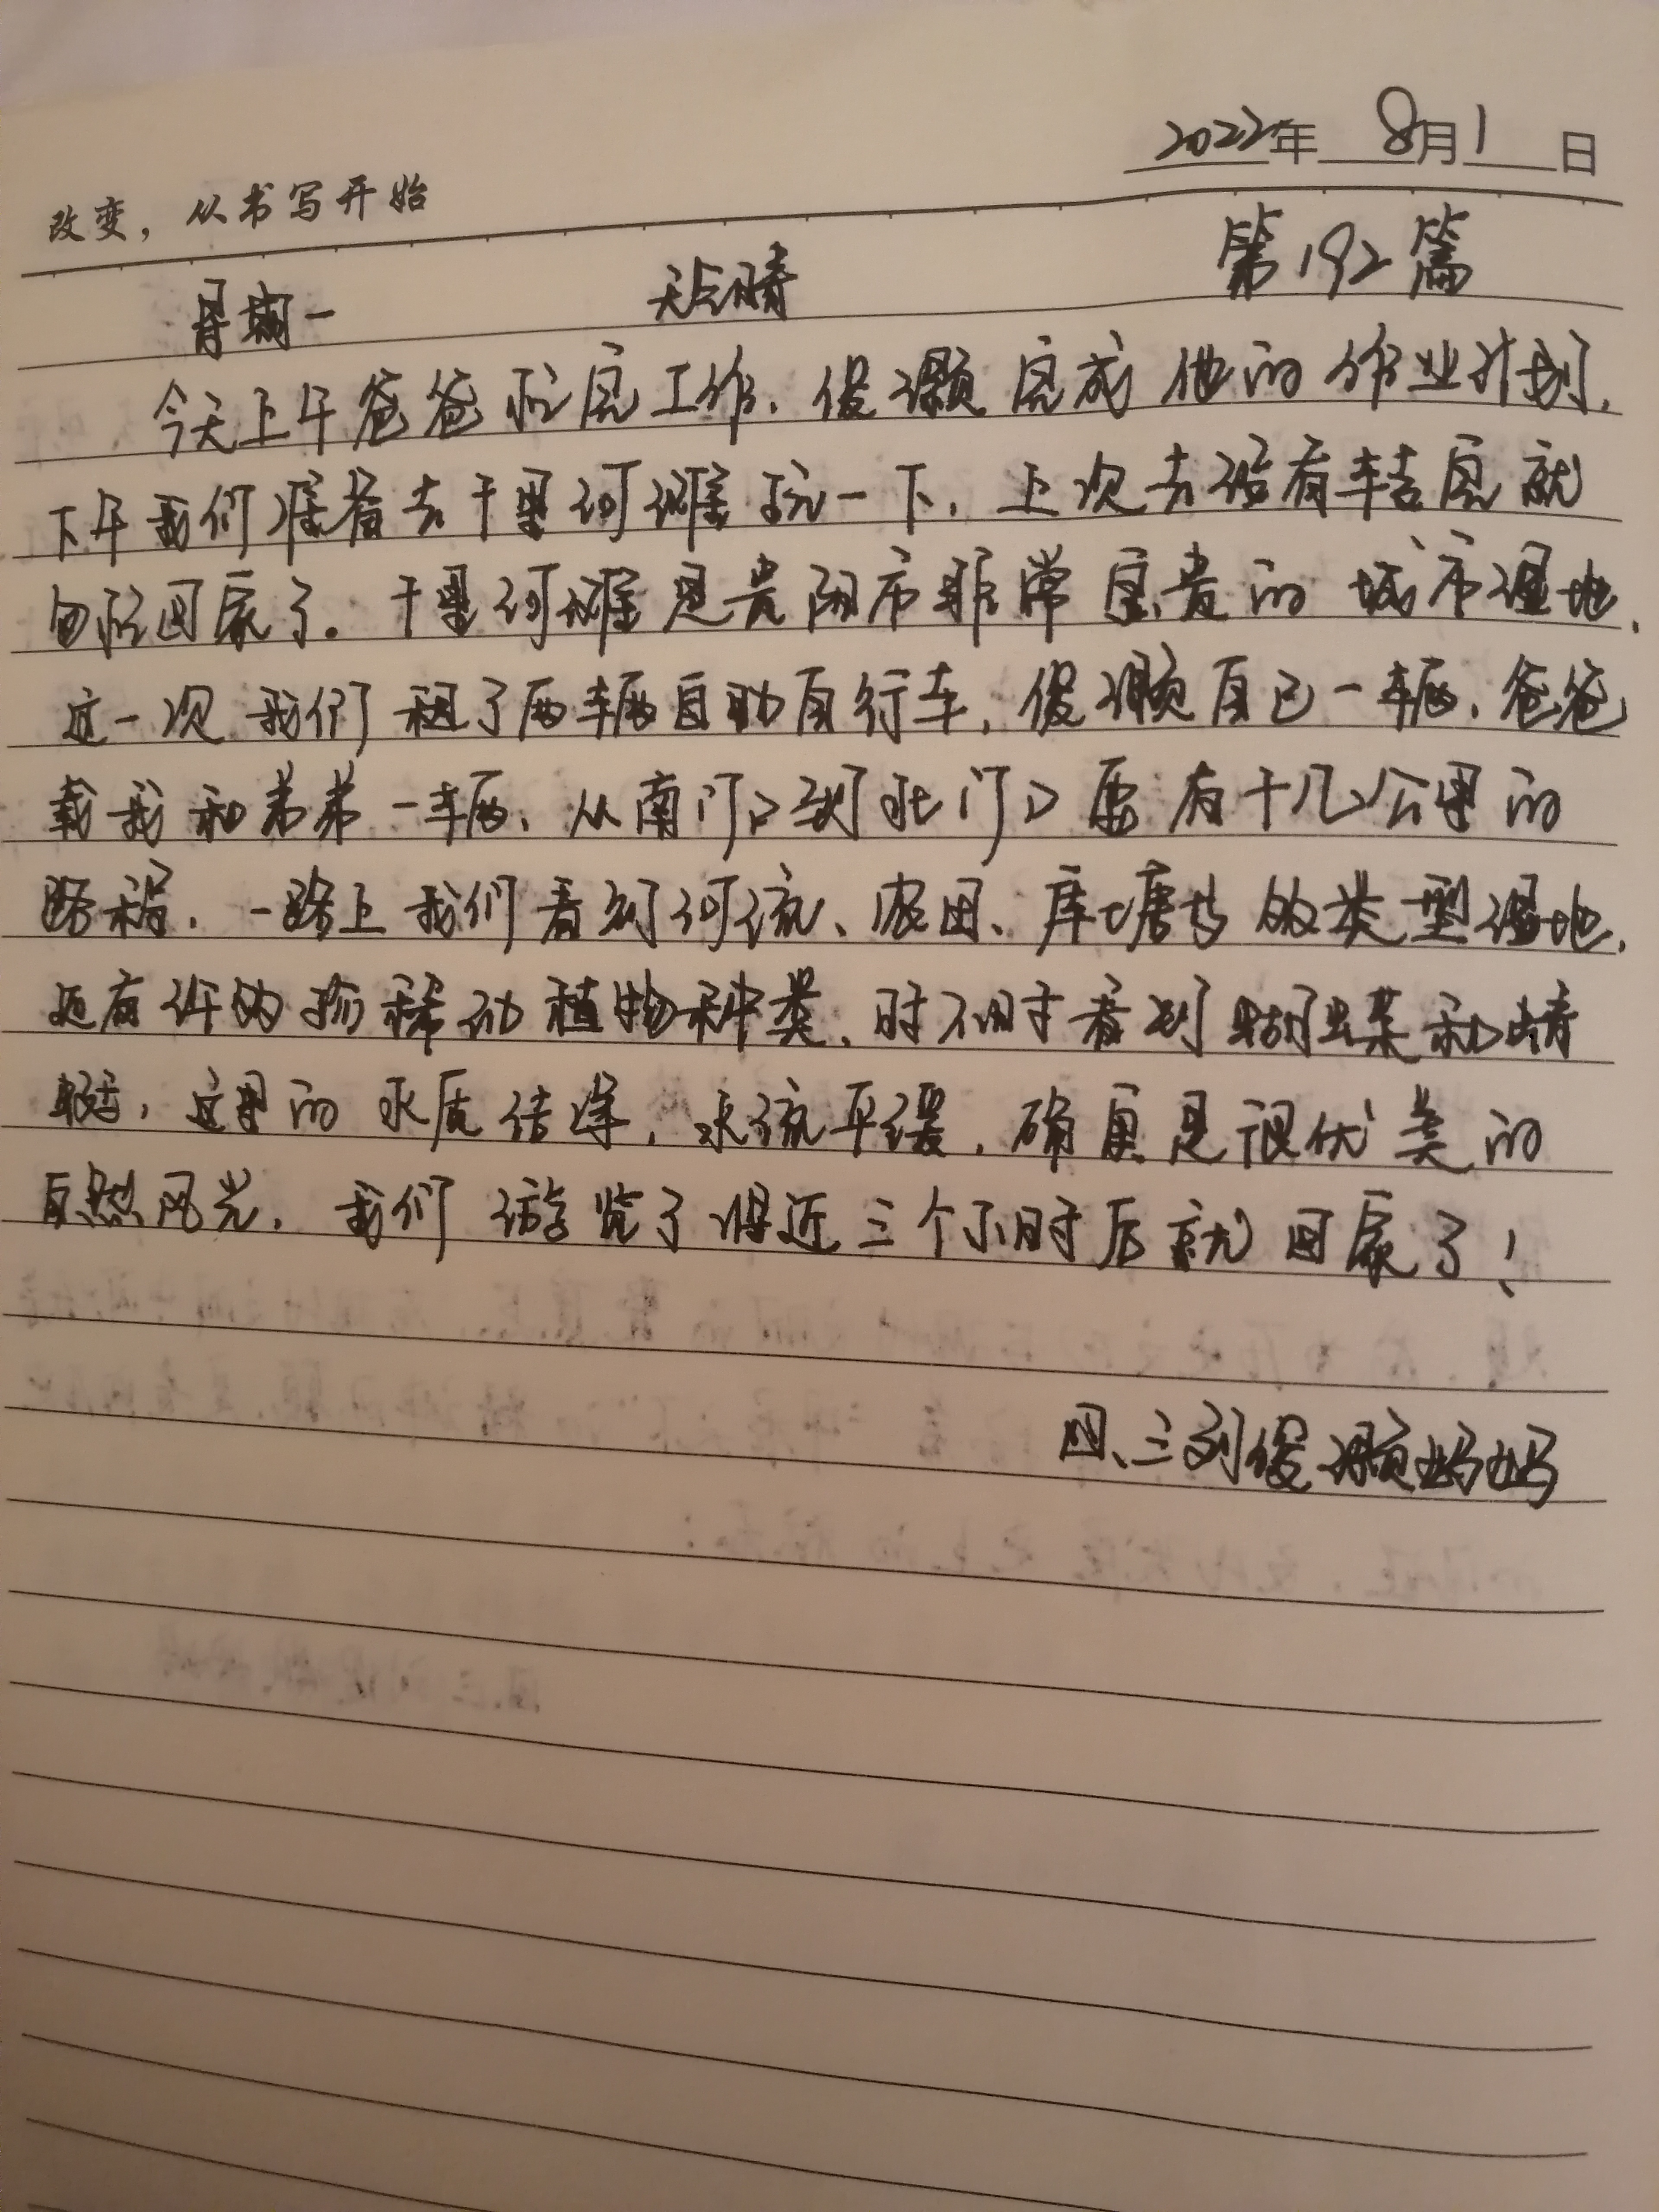 2022年 8月1日
改变，从书写开始
星期一 天气晴 第192篇
今天上午爸爸忙完工作，俊灏完成他的作业计划，
下午我们准备去十里河滩玩一下，上次去没有转完就
匆忙回家了。十里河滩是贵阳市非常宝贵的城市湿地，
这一次我们租了两辆自助自行车，俊灏自己一辆，爸爸
载我和弟弟一辆，从南门口到北门口要有十几公里的
路程，一路上我们看到河流、农田、库塘等的类型湿地，
还有许的珍稀动植物种类，时不时看到蝴蝶和蜻
蜓，这里的水质洁净，水流平缓，确实是很优美的
自然风光，我们游览了将近三个小时后就回家了！
四、三刘俊灏妈妈